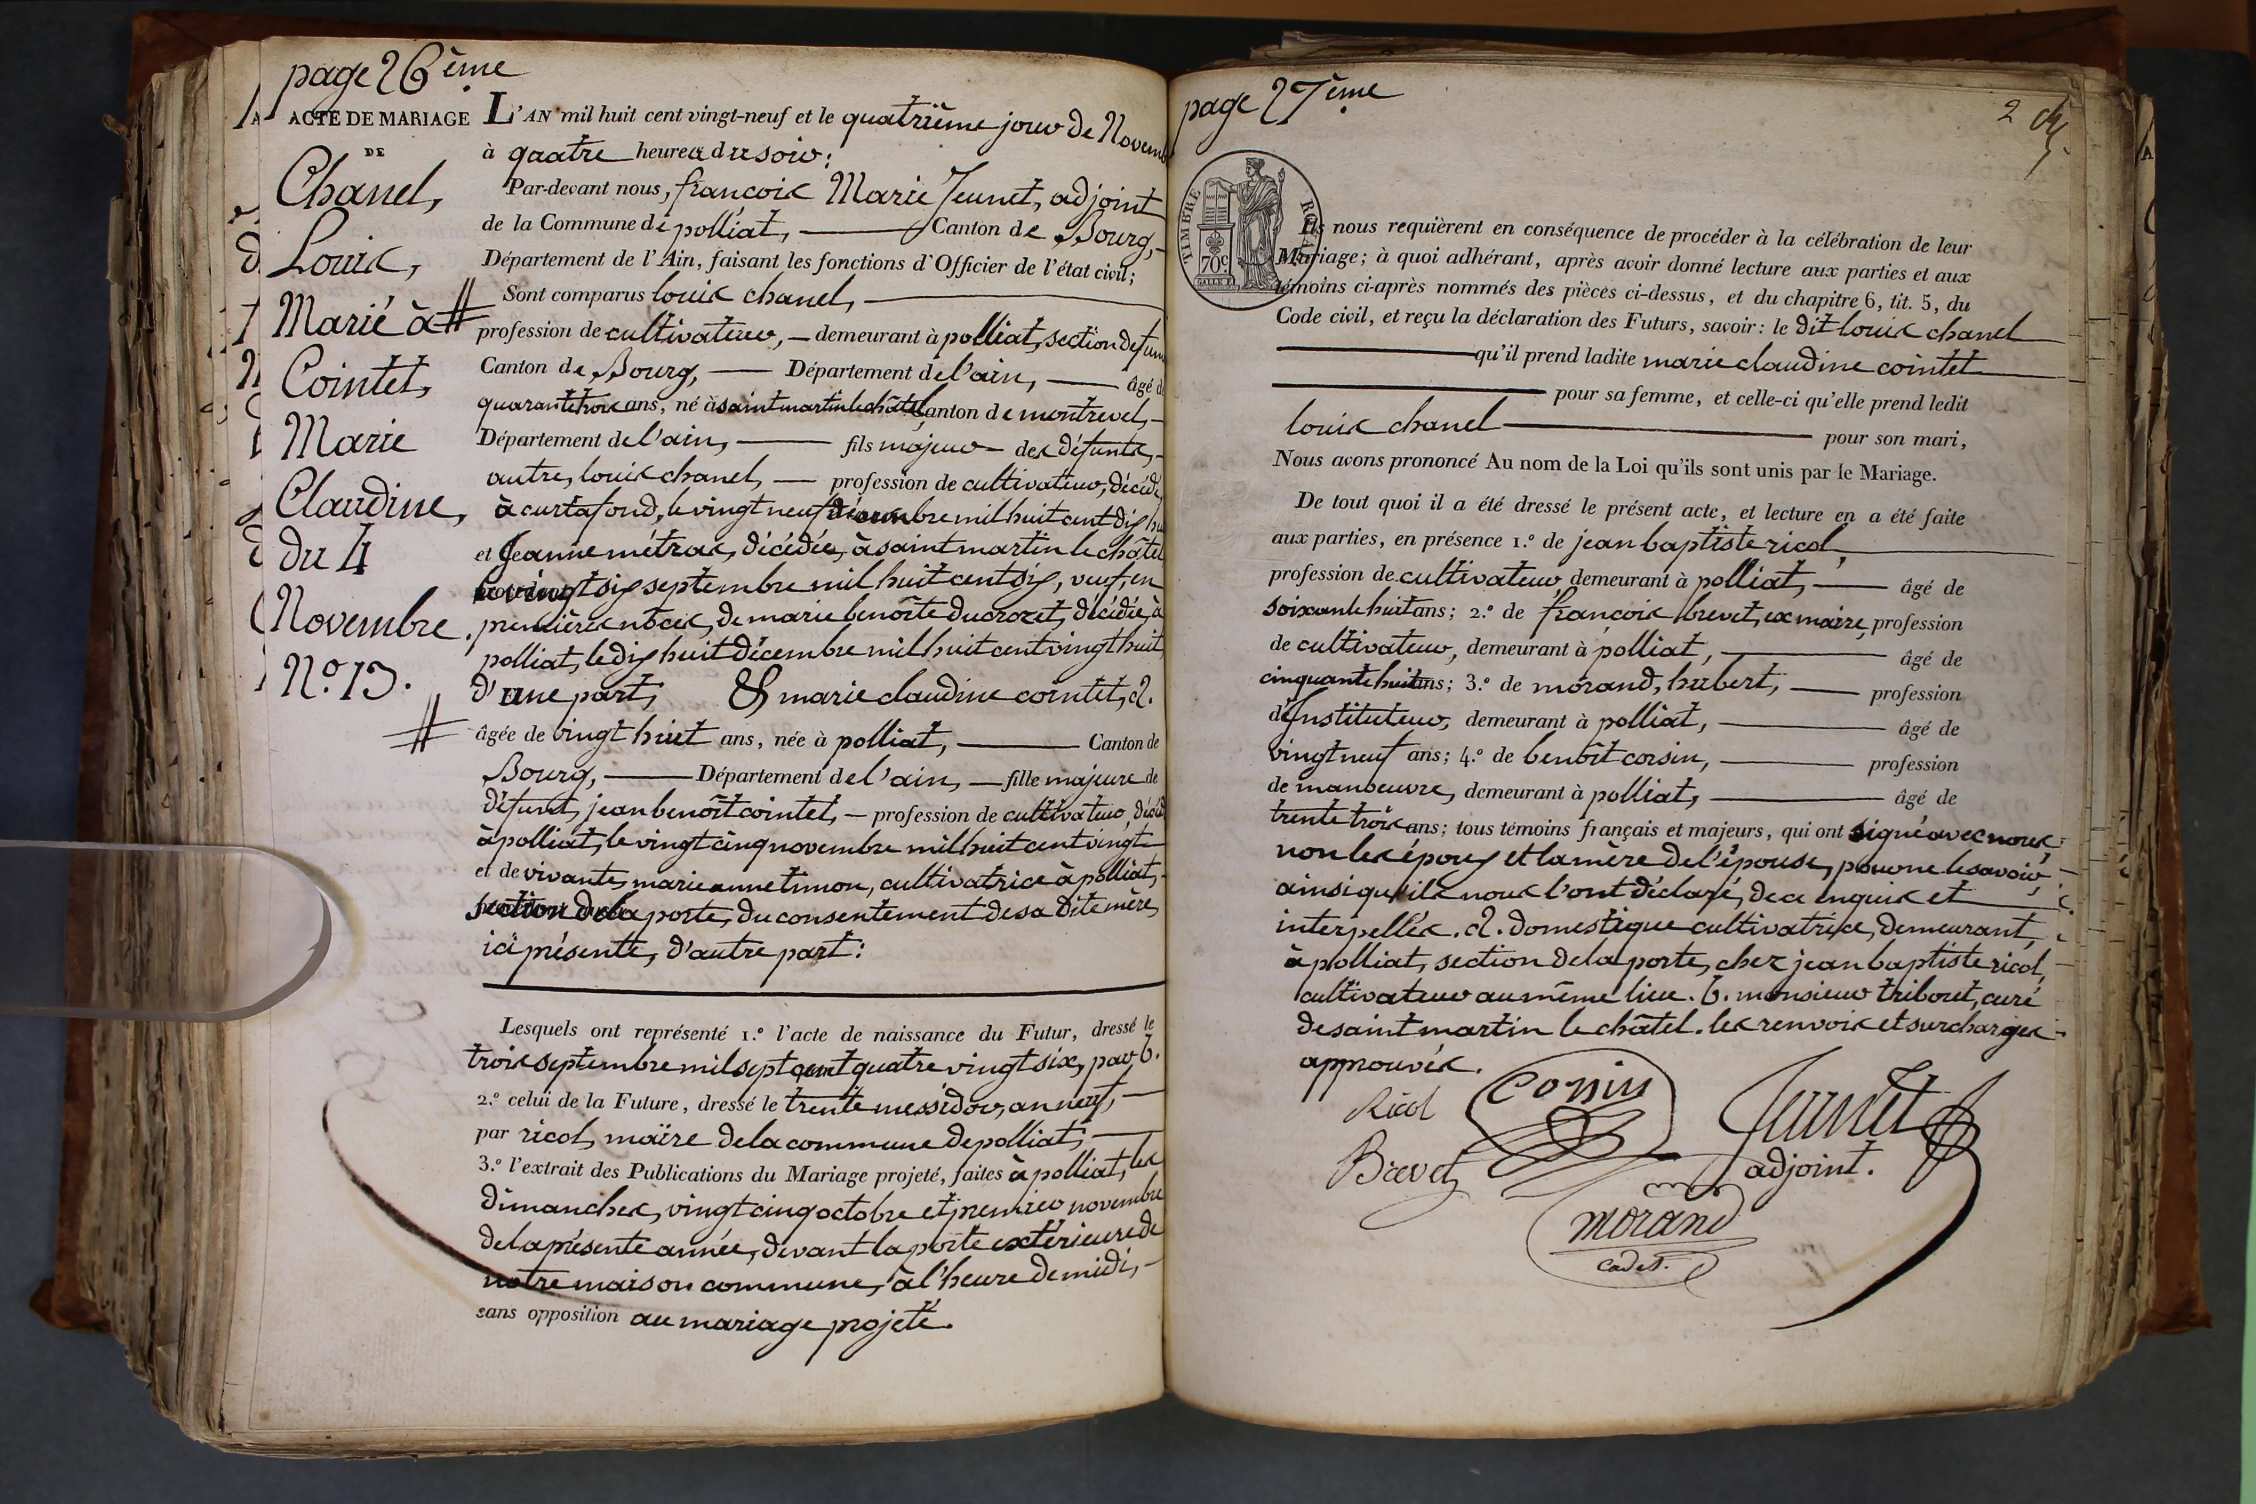 page 26ème
ACTE DE MARIAGE
DE
Chanel,
Louis,
Marié à
Cointet,
Marie
Claudine,
du 4
Novembre.
N.º 13.
L'AN mil huit cent vingt-neuf et le quatrième jour de Novemb
à quatre heures du soir:
Par-devant nous, françois Marie Jeunet, adjoint
de la Commune de polliat, Canton de Bourg,
Département de l'Ain, faisant les fonctions d'Officier de l'état civil;
Sont comparus louis chanel,
profession de cultivateur, demeurant à polliat, section de
Canton de Bourg, Département de l'ain, âgé d
quarante trois ans, né à saint martin le châtel, Canton de montrevel,
Département de l'ain, fils majeur des défunts,
autre, louis chanel, profession de cultivateur, décédé,
à curtafond, le vingt neuf décembre mil huit cent dix hu
et Jeanne métras, décédée, à saint martin le châtel
le vingt six septembre mil huit cent six, veuf, en
premières nôces, de marie benoîte ducrozet, décédée, à
polliat, le dix huit décembre mil huit cent vingt huit,
d'une part, & marie claudine cointet, a.
âgée de vingt huit ans, née à polliat, Canton de
Bourg, Département de l'ain, fille majeure de
défunt, jean benoît cointet, profession de cultivateur, décéd
à polliat, le vingt cinq novembre mil huit cent vingt
et de vivante, marie anne timon, cultivatrice à polliat,
section de la porte, du consentement de sa dite mère,
ici présente, d'autre part:
Lesquels ont représenté 1.º l'acte de naissance du Futur, dressé le
trois septembre mil sept cent quatre vingt six, par b.
2.º celui de la Future, dressé le trente messidor, an neuf,
par ricol, maire de la commune de polliat,
3.º l'extrait des Publications du Mariage projeté, faites à polliat, les
dimanches, vingt cinq octobre et premier novembre
de la présente année, devant la porte extérieure de
notre maison commune, à l'heure de midi,
sans opposition au mariage projeté.
page 27ème
2
TIMBRE ROYAL
70c
Ils nous requièrent en conséquence de procéder à la célébration de leur
Mariage; à quoi adhérant, après avoir donné lecture aux parties et aux
témoins ci-après nommés des pièces ci-dessus, et du chapitre 6, tit. 5, du
Code civil, et reçu la déclaration des Futurs, savoir: le dit louis chanel
qu'il prend ladite marie claudine cointet
pour sa femme, et celle-ci qu'elle prend ledit
louis chanel pour son mari,
Nous avons prononcé Au nom de la Loi qu'ils sont unis par le Mariage.
De tout quoi il a été dressé le présent acte, et lecture en a été faite
aux parties, en présence 1.º de jean baptiste ricol,
profession de cultivateur, demeurant à polliat, âgé de
soixante huit ans; 2.º de françois brevet, ex maire, profession
de cultivateur, demeurant à polliat, âgé de
cinquante huit ans; 3.º de morand, hubert, profession
d'Instituteur, demeurant à polliat, âgé de
vingt neuf ans; 4.º de benoît corsin, profession
de manoeuvre, demeurant à polliat, âgé de
trente trois ans; tous témoins français et majeurs, qui ont signé avec nous
non les époux et la mère de l'épouse, pour ne le savoir,
ainsi qu'ils nous l'ont déclaré, de ce enquis et
interpellés. a. domestique cultivatrice, demeurant,
à polliat, section de la porte, chez jean baptiste ricol,
cultivateur au même lieu. b. monsieur triboret, curé
de saint martin le châtel. les renvois et surcharges
approuvés.
Ricol
Corsin
Jeunet
adjoint.
Brevet
morand
cadet.